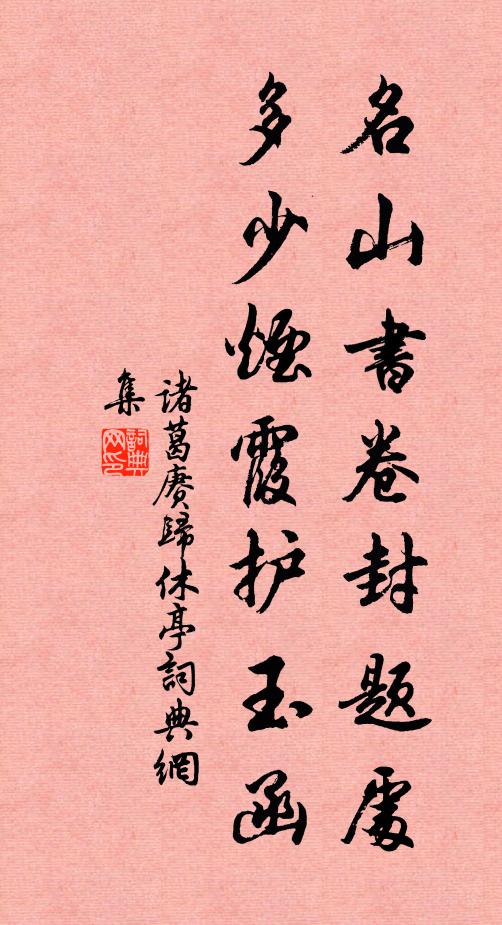 名山書卷封题處
多少煙霞护玉函
諸葛赓歸休亭詞典網
集
詞典
网印